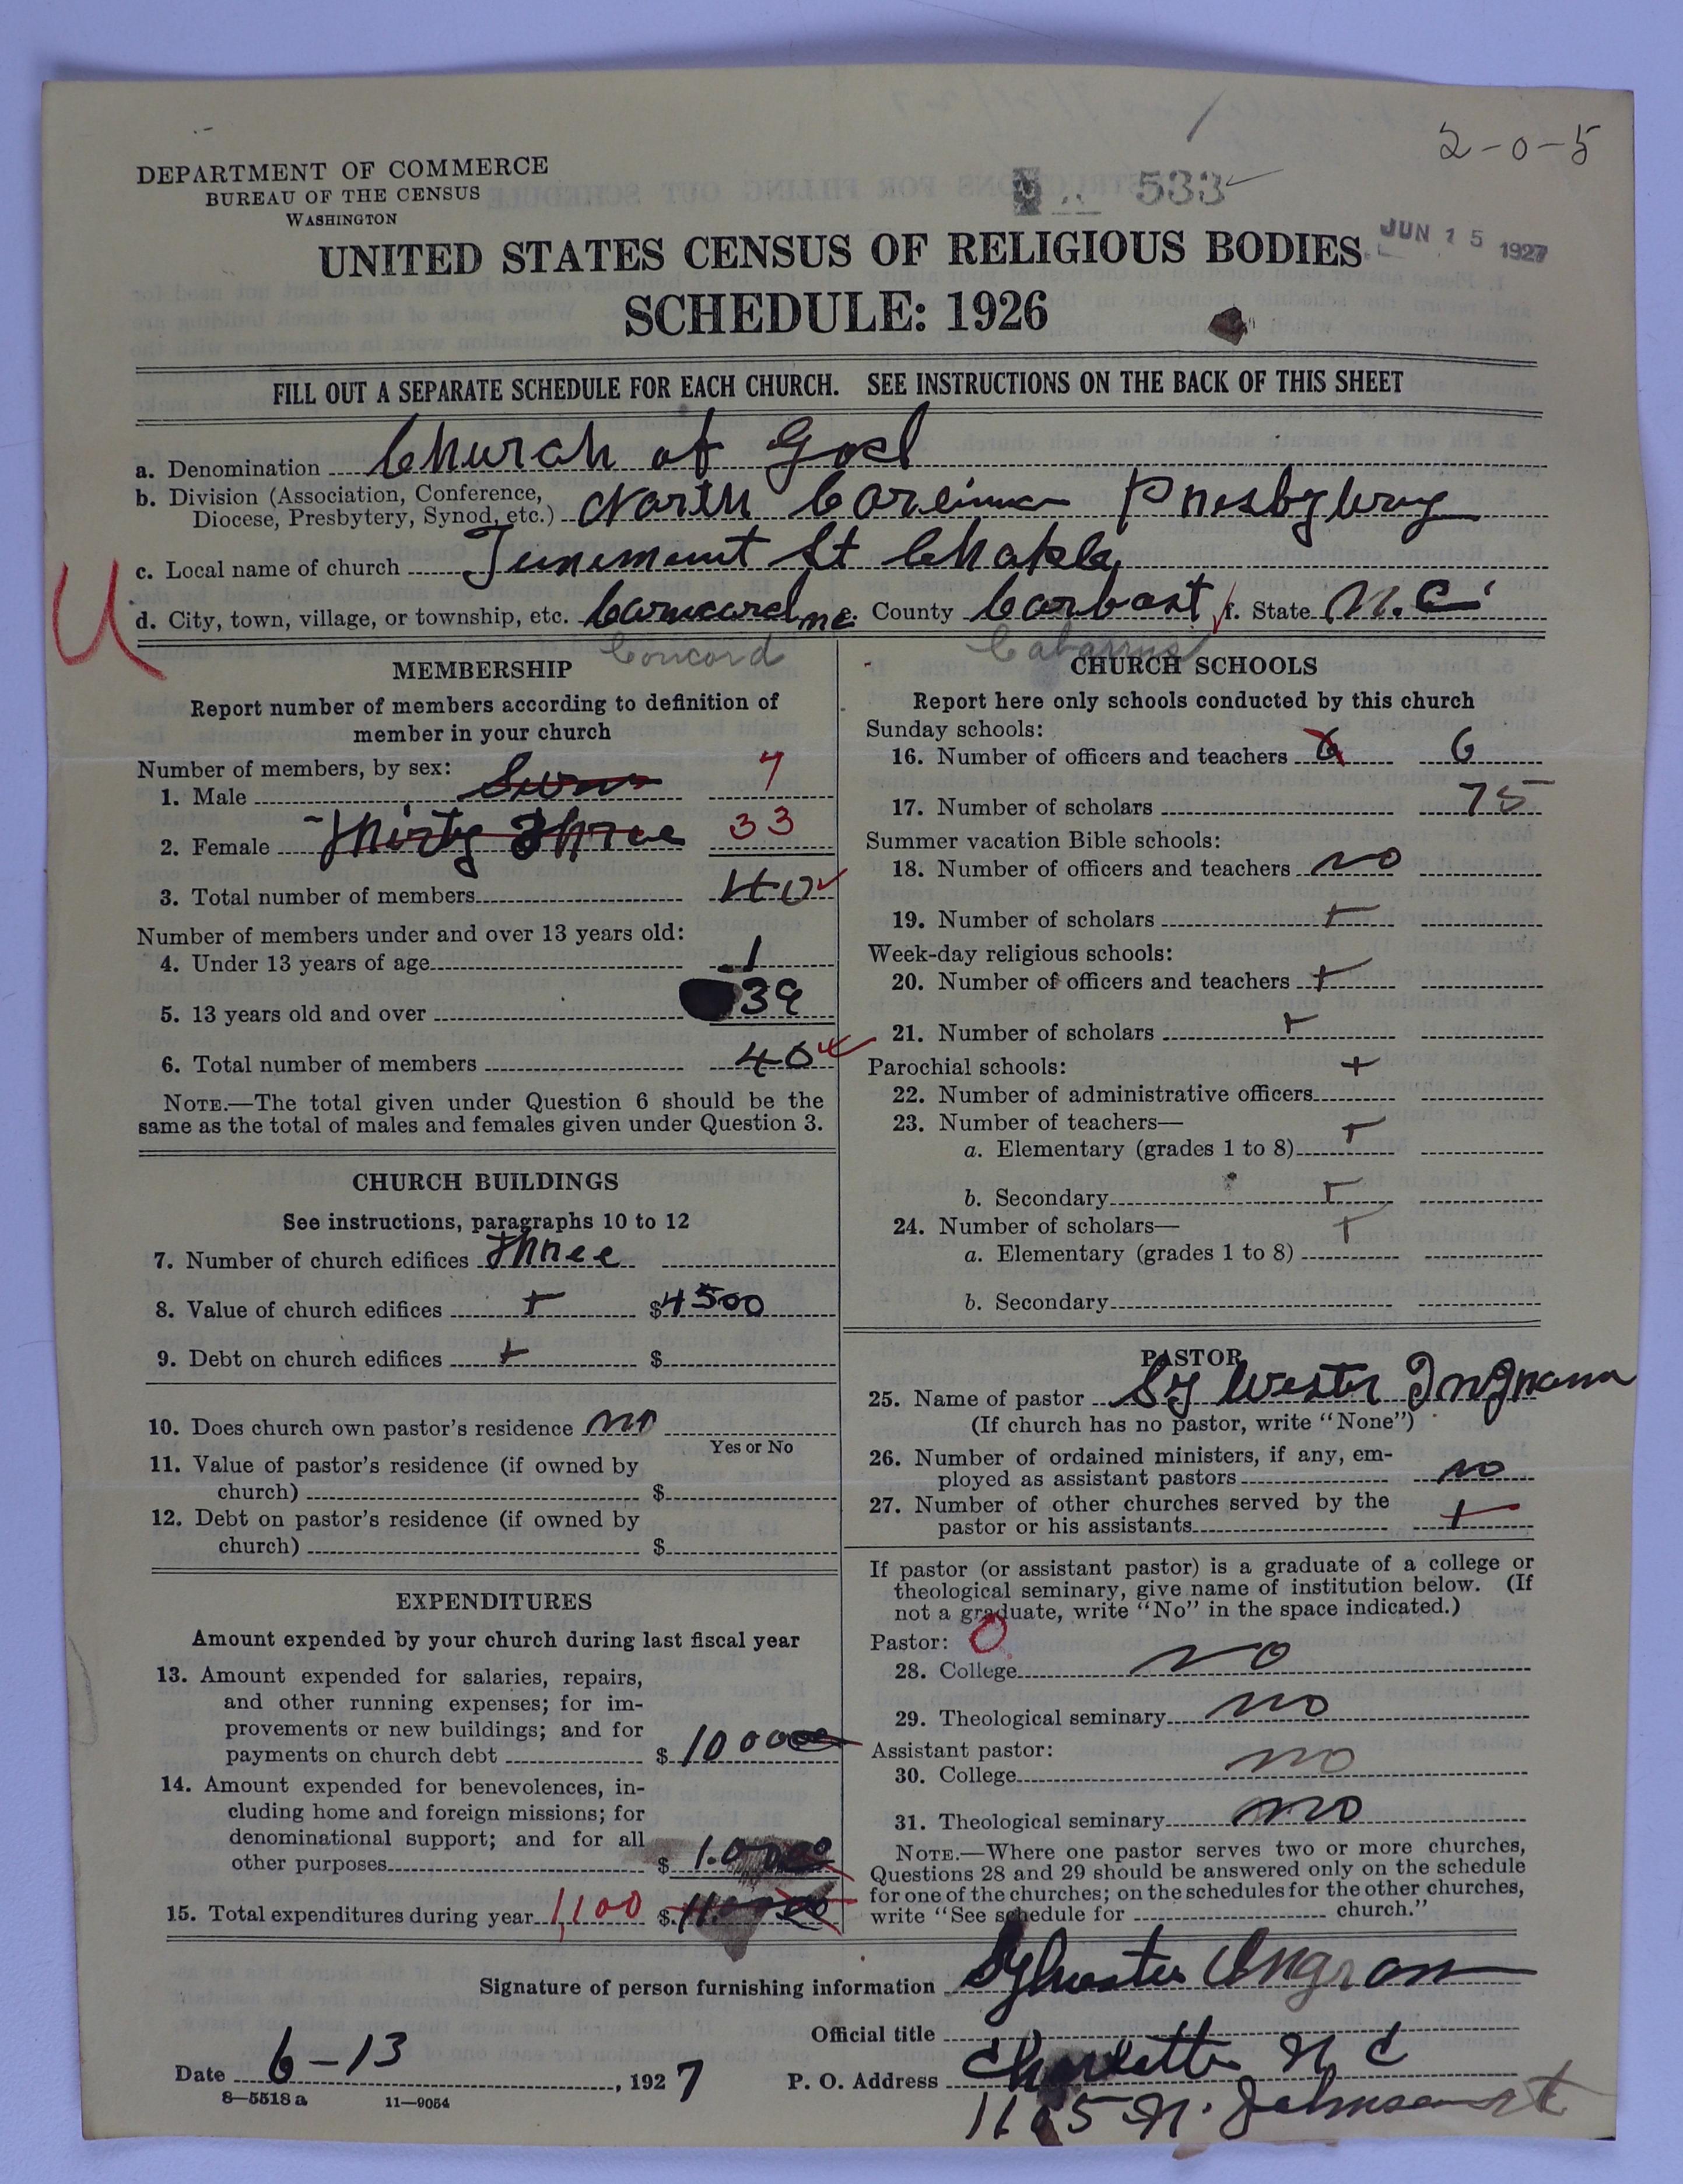 2-0-5
DEPARTMENT OF COMMERCE
BUREAU OF THE CENSUS
WASHINGTON
533
JUN 15 1927
UNITED STATES CENSUS OF RELIGIOUS BODIES
SCHEDULE: 1926
FILL OUT A SEPARATE SCHEDULE FOR EACH CHURCH. SEE INSTRUCTIONS ON THE BACK OF THIS SHEET
a. Denomination Church of God
b. Division (Association, Conference,
Diocese, Presbytery, Synod, etc.) North
c. Local name of church St
d. City, town, village, or township, etc. e. County f. State N.C.
Concord Cabarrus
U
MEMBERSHIP
Report number of members according to definition of
member in your church
Number of members, by sex:
1. Male 7
2. Female Thirty Three 33
3. Total number of members 40
Number of members under and over 13 years old:
4. Under 13 years of age 1
5. 13 years old and over 39
6. Total number of members 40
NOTE.—The total given under Question 6 should be the
same as the total of males and females given under Question 3.
CHURCH BUILDINGS
See instructions, paragraphs 10 to 12
7. Number of church edifices Three
8. Value of church edifices + $4500
9. Debt on church edifices + $
10. Does church own pastor's residence no
Yes or No
11. Value of pastor's residence (if owned by
church) $
12. Debt on pastor's residence (if owned by
church) $
EXPENDITURES
Amount expended by your church during last fiscal year
13. Amount expended for salaries, repairs,
and other running expenses; for im-
provements or new buildings; and for
payments on church debt $ 1000
14. Amount expended for benevolences, in-
cluding home and foreign missions; for
denominational support; and for all
other purposes $
15. Total expenditures during year 1,100 $
CHURCH SCHOOLS
Report here only schools conducted by this church
Sunday schools:
16. Number of officers and teachers 6 6
17. Number of scholars 75
Summer vacation Bible schools:
18. Number of officers and teachers no
19. Number of scholars +
Week-day religious schools:
20. Number of officers and teachers +
21. Number of scholars +
Parochial schools: +
22. Number of administrative officers
23. Number of teachers— +
a. Elementary (grades 1 to 8)
b. Secondary +
24. Number of scholars— +
a. Elementary (grades 1 to 8)
b. Secondary
PASTOR
25. Name of pastor Sy Wester
(If church has no pastor, write "None")
26. Number of ordained ministers, if any, em-
ployed as assistant pastors no
27. Number of other churches served by the
pastor or his assistants +
If pastor (or assistant pastor) is a graduate of a college or
theological seminary, give name of institution below. (If
not a graduate, write "No" in the space indicated.)
Pastor: 0
28. College no
29. Theological seminary no
Assistant pastor:
30. College no
31. Theological seminary no
NOTE.—Where one pastor serves two or more churches,
Questions 28 and 29 should be answered only on the schedule
for one of the churches; on the schedules for the other churches,
write "See schedule for church."
Signature of person furnishing information Sylvester Ingram
Official title
Date 6-13, 1927 P. O. Address Charlotte N C
N. Johnson st
8—5518a 11—9054